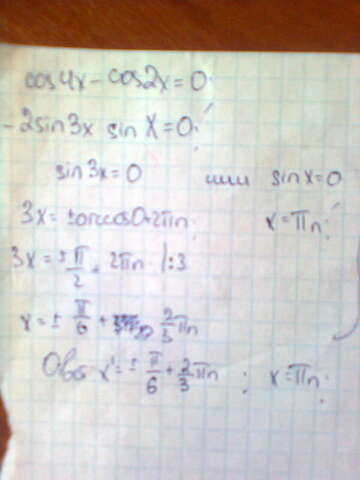 cos4x - cos2x = 0;
-2sin3x sin x = 0;
sin3x = 0 или sin x = 0
3x = ± arccos0 + 2πn; x = πn;
3x = ± π/2 + 2πn /:3
x = ± π/6 + 2/3 πn
Ответ x = ± π/6 + 2/3 πn ; x = πn;